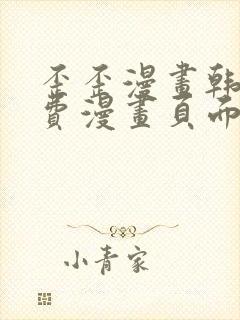 歪歪漫畫韩
費漫畫頁而
小青家